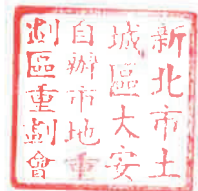 新北市土
城區大安
自辦市地重
劃區重劃會